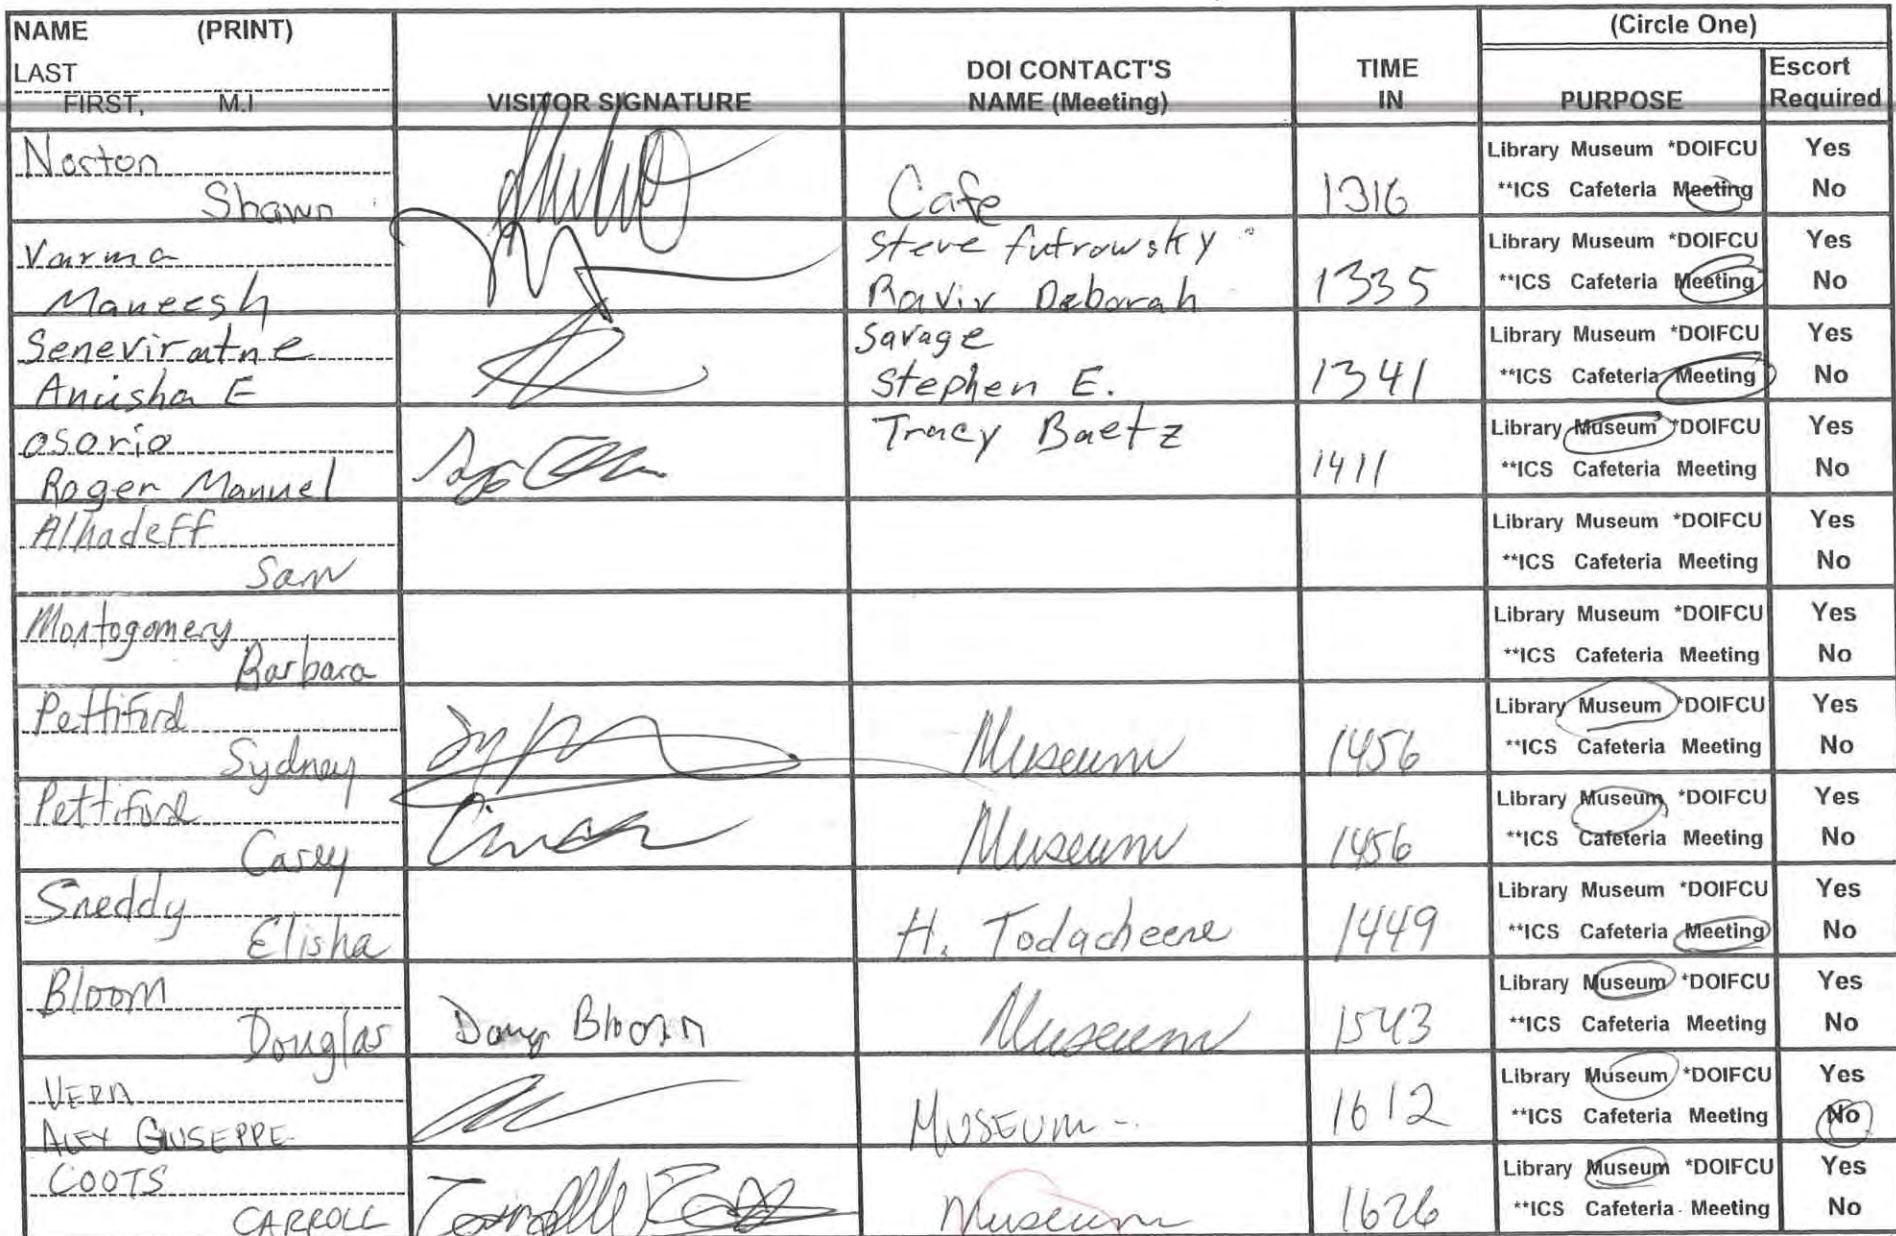 NAME (PRINT)
LAST
FIRST, M.I
VISITOR SIGNATURE
DOI CONTACT'S
NAME (Meeting)
TIME
IN
(Circle One)
PURPOSE
Escort
Required
Norton
Shawn
Cafe
1316
Library Museum *DOIFCU Yes
**ICS Cafeteria Meeting No
Varma
Maneesh
Steve futrowsky
Raviv Deborah
1335
Library Museum *DOIFCU Yes
**ICS Cafeteria Meeting No
Seneviratne
Anusha E
Savage
Stephen E.
1341
Library Museum *DOIFCU Yes
**ICS Cafeteria Meeting No
Osorio
Roger Manuel
Tracy Baetz
1411
Library Museum *DOIFCU Yes
**ICS Cafeteria Meeting No
Alhadeff
Sam
Library Museum *DOIFCU Yes
**ICS Cafeteria Meeting No
Montogomery
Barbara
Library Museum *DOIFCU Yes
**ICS Cafeteria Meeting No
Pettiford
Sydney
Museum
1456
Library Museum *DOIFCU Yes
**ICS Cafeteria Meeting No
Pettiford
Casey
Museum
1456
Library Museum *DOIFCU Yes
**ICS Cafeteria Meeting No
Sneddy
Elisha
H. Todacheene
1449
Library Museum *DOIFCU Yes
**ICS Cafeteria Meeting No
Bloom
Douglas
Doug Bloom
Museum
1543
Library Museum *DOIFCU Yes
**ICS Cafeteria Meeting No
VERA
ALEX GIUSEPPE
MUSEUM -
1612
Library Museum *DOIFCU Yes
**ICS Cafeteria Meeting No
COOTS
CARROLL
Museum
1626
Library Museum *DOIFCU Yes
**ICS Cafeteria Meeting No